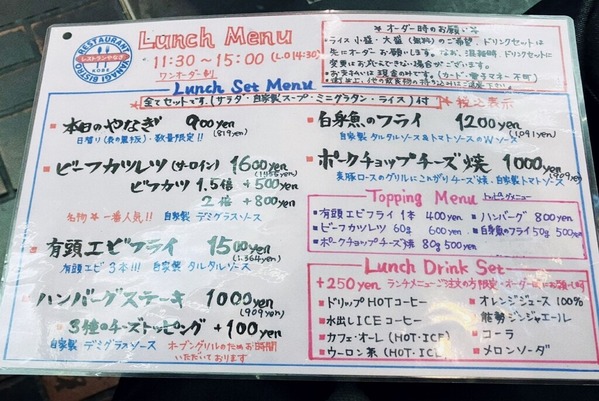 RESTAURANT
レストランやなぎ
KOBE
YANAGI BISTRO
Lunch Menu
11:30～15:00 (L.O 14:30)
ワンオーダー制
オーダー時のお願い
・ライス小盛・大盛(無料)のご希望、ドリンクセットは
先にオーダーお願いします。なお、混雑時、ドリンクセットに
変更はお受けできない場合がございます。
・お支払いは現金のみです。(カード・電子マネー不可)
Lunch Set Menu
全てセットです。(サラダ・自家製スープ・ミニグラタン・ライス)付
★税込表示
本日のやなぎ 900yen
(819yen)
日替り(表の黒板)・数量限定!!
ビーフカツレツ(サーロイン) 1600yen
ビーフカツ 1.5倍 +500yen
2倍 +800yen
名物★一番人気!! 自家製 デミグラスソース
有頭エビフライ 1500yen
(1.364yen)
有頭エビ3本!!! 自家製 タルタルソース
ハンバーグステーキ 1000yen
(909yen)
3種のチーズトッピング +100yen
自家製 デミグラスソース
オーブングリルのためお時間
いただいております
白身魚のフライ 1200yen
(1091yen)
自家製 タルタルソース&トマトソースのWソース
ポークチョップチーズ焼 1000yen
(909yen)
麦豚ロースのグリルにこんがりチーズ焼・自家製トマトソース
Topping Menu トッピングメニュー
有頭エビフライ1本 400yen
ハンバーグ 800yen
ビーフカツレツ 60g 600yen
白身魚のフライ 50g 500yen
ポークチョップチーズ焼 80g 500yen
Lunch Drink Set
+250yen ランチメニューご注文の方限定・オーダー時にお願いします
ドリップHOTコーヒー
オレンジジュース100%
水出しICEコーヒー
能勢ジンジャエール
カフェ・オーレ(HOT・ICE)
コーラ
ウーロン茶(HOT・ICE)
メロンソーダ